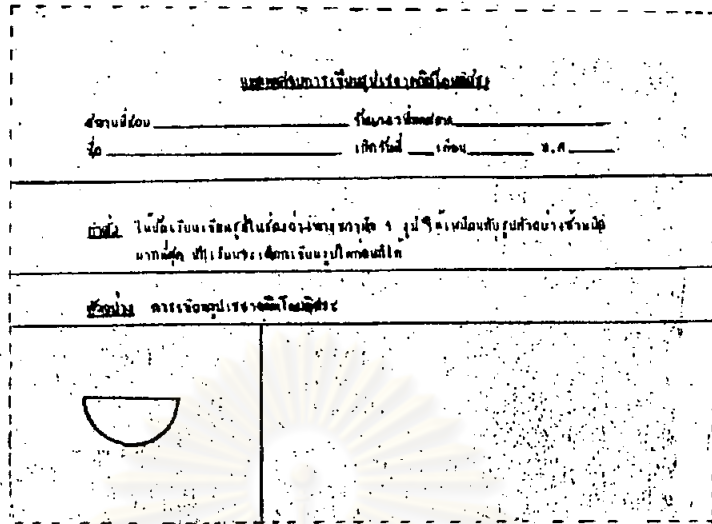 แบบทดสอบการเขียนรูปเรขาคณิตโดยอิสระ
สถานที่สอบ วันเวลาที่ทดสอบ
ชื่อ เกิดวันที่ เดือน พ.ศ.
คำสั่ง ให้นักเรียนเขียนรูปในช่องว่างทางขวามือ 1 รูป ให้เหมือนกับรูปตัวอย่างซ้ายมือ
มากที่สุด นักเรียนจะเลือกเขียนรูปใดก่อนก็ได้
ตัวอย่าง การเขียนรูปเรขาคณิตโดยอิสระ